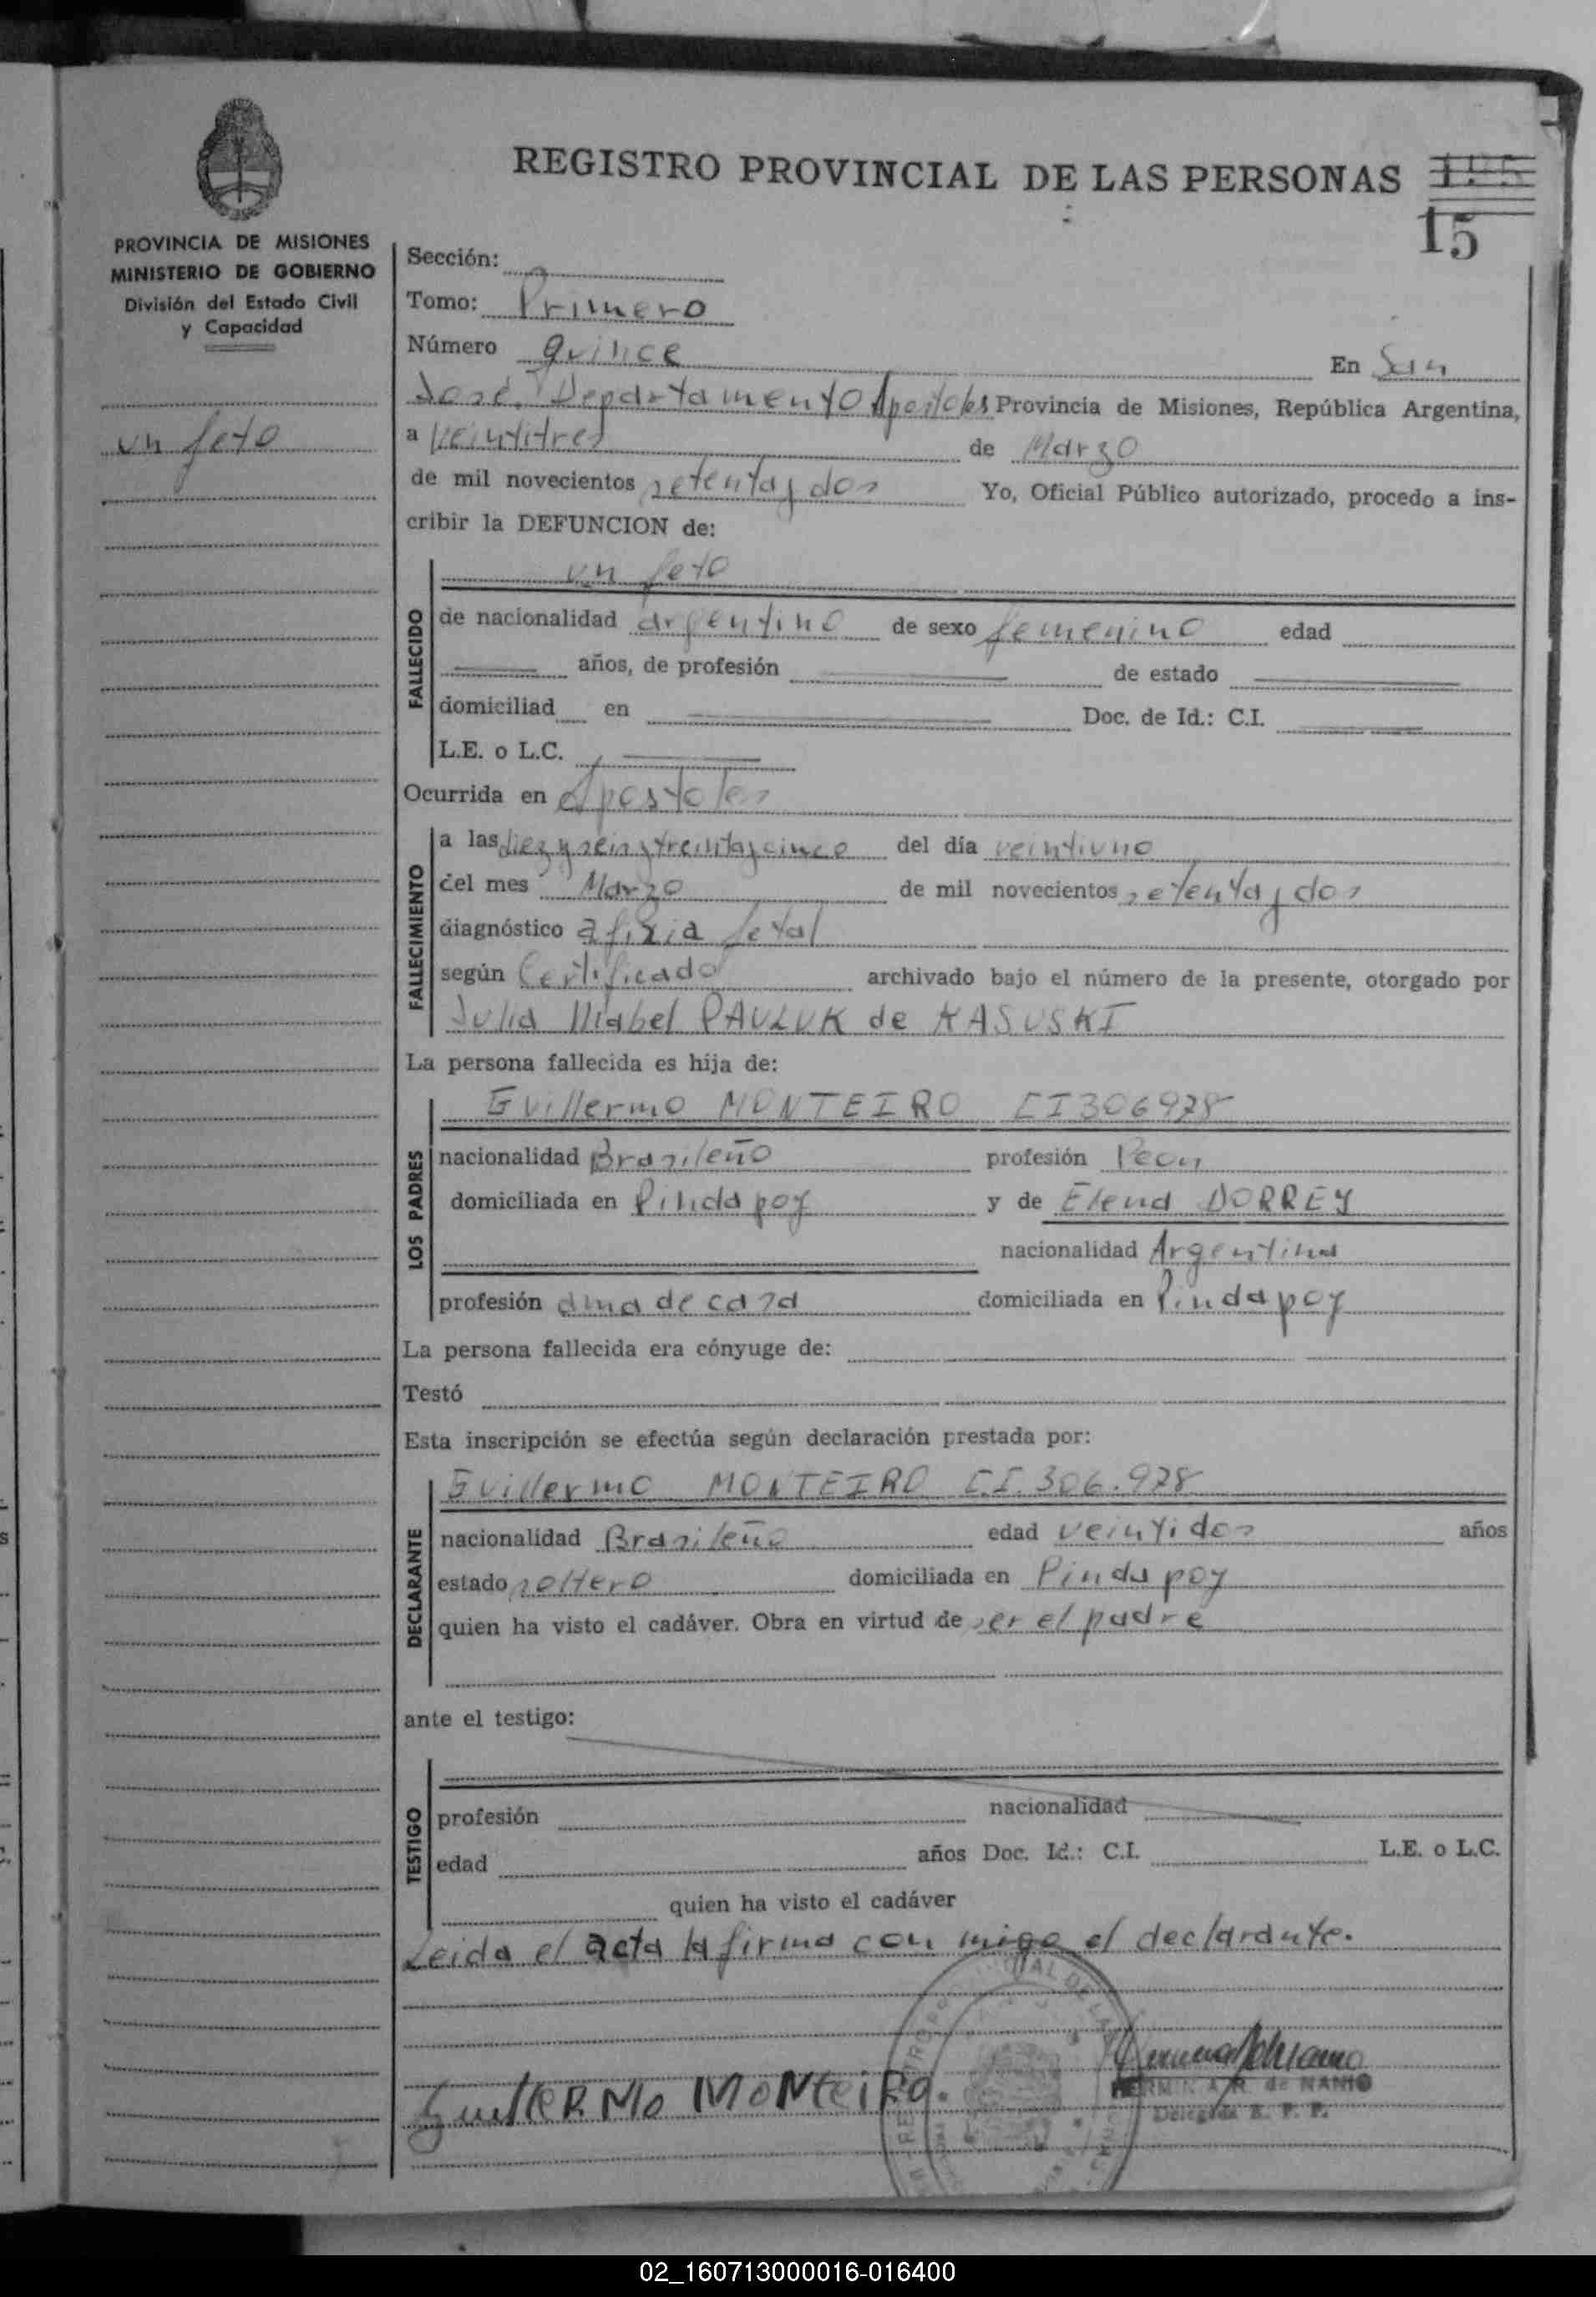 REGISTRO PROVINCIAL DE LAS PERSONAS
15
PROVINCIA DE MISIONES
MINISTERIO DE GOBIERNO
División del Estado Civil
y Capacidad
un feto
Sección:
Tomo: Primero
Número quince En San
José, Departamento Apostoles Provincia de Misiones, República Argentina,
a veintitres de Marzo
de mil novecientos setenta y dos Yo, Oficial Público autorizado, procedo a ins-
cribir la DEFUNCION de:
un feto
FALLECIDO
de nacionalidad argentino de sexo femenino edad
años, de profesión de estado
domiciliad en Doc. de Id.: C.I.
L.E. o L.C.
Ocurrida en Apostoles
FALLECIMIENTO
a las diez y seis y treinta y cinco del día veintiuno
del mes Marzo de mil novecientos setenta y dos
diagnóstico afixia fetal
según Certificado archivado bajo el número de la presente, otorgado por
Julia Mabel PAULUK de KASUSKI
La persona fallecida es hija de:
Guillermo MONTEIRO CI 306978
LOS PADRES
nacionalidad Brasileño profesión Peon
domiciliada en Pindapoy y de Elena DORREY
nacionalidad Argentina
profesión ama de casa domiciliada en Pindapoy
La persona fallecida era cónyuge de:
Testó
Esta inscripción se efectúa según declaración prestada por:
Guillermo MONTEIRO C.I. 306.978
DECLARANTE
nacionalidad Brasileño edad veintidos años
estado soltero domiciliada en Pindapoy
quien ha visto el cadáver. Obra en virtud de ser el padre
ante el testigo:
TESTIGO
profesión nacionalidad
edad años Doc. Id.: C.I. L.E. o L.C.
quien ha visto el cadáver
Leida el acta la firma con migo el declarante.
GuillERMo MONteiRo.
HERMINIA R. de NANIO
Delegada R. P. P.
02_160713000016-016400